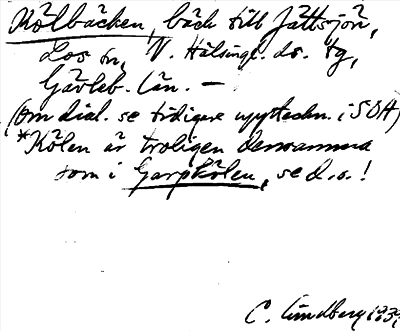 Kölbäcken, bäck till Jättsjön,
Los sn, V. Hälsingl. ds. tg,
Gävleb. län. —
(om dial. se tidigare uppteckn. i SOA)
*Kölen är troligen densamma
som i Garpkölen, se d. o. !
C. Lindberg 1939